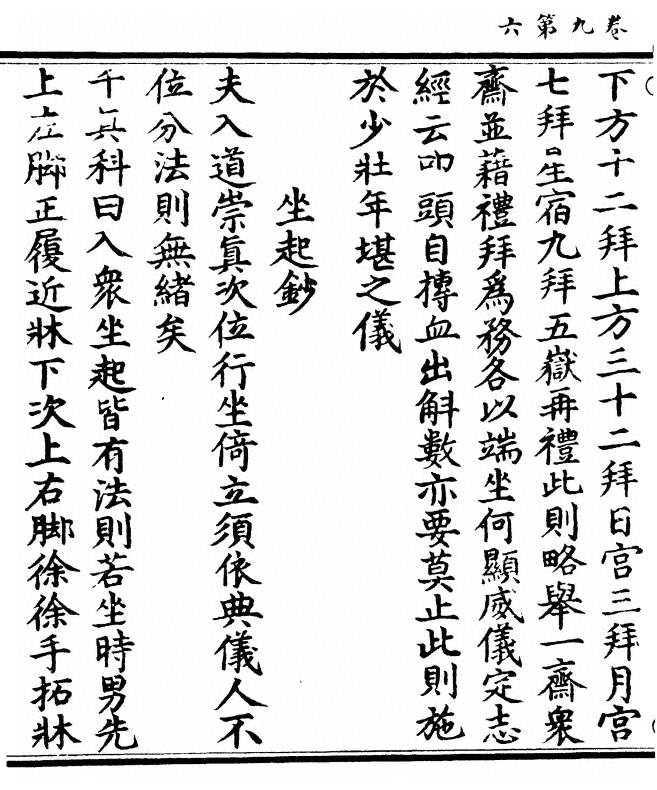 卷九第六
下方十二拜上方三十二拜日宫三拜月宫
七拜星宿九拜五嶽再禮此則略舉一齋衆
齋並藉禮拜爲務各以端坐何顯威儀定志
經云叩頭自摶血出斛數亦要莫止此則施
於少壯年堪之儀
坐起鈔
夫入道崇真次位行坐倚立須依典儀人不
位分法則無緒矣
千真科曰入衆坐起皆有法則若坐時男先
上左脚正履近牀下次上右脚徐徐手拓牀